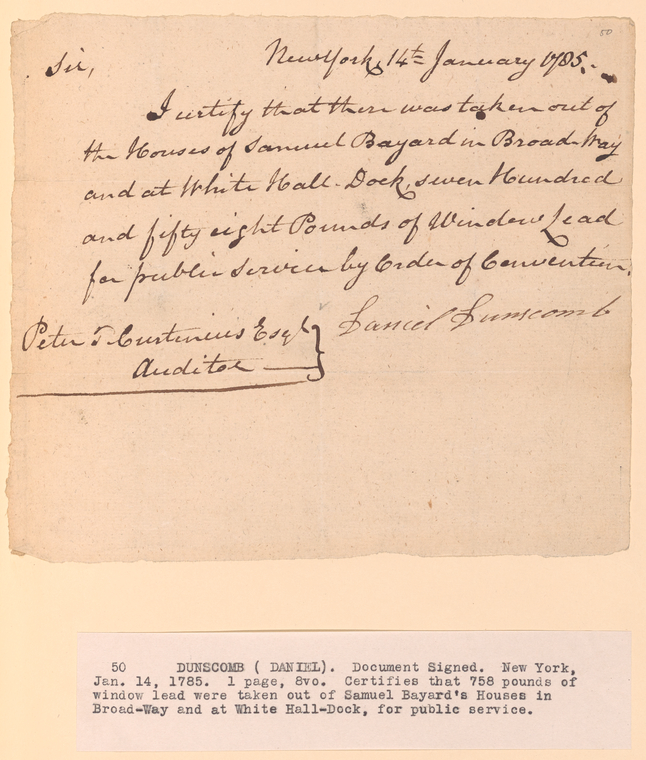 50
New York, 14th January 1785.
Sir,
I certify that there was taken out of
the Houses of Samuel Bayard in Broad-Way
and at White Hall-Dock, seven Hundred
and fifty eight Pounds of Window Lead
for public service by Order of Convention.
Daniel Dunscomb
Peter T Curtenius Esqr
Auditor
50 DUNSCOMB ( DANIEL). Document Signed. New York,
Jan. 14, 1785. 1 page, 8vo. Certifies that 758 pounds of
window lead were taken out of Samuel Bayard's Houses in
Broad-Way and at White Hall-Dock, for public service.